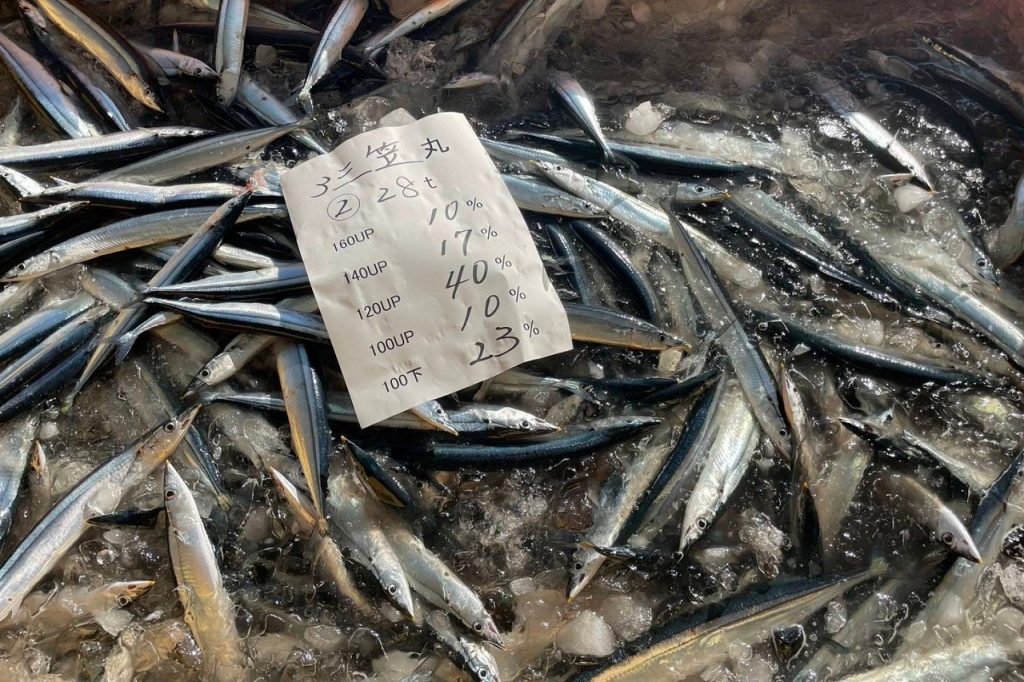 3三笠丸
② 28t
160UP 10%
140UP 17%
120UP 40%
100UP 10%
100下 23%